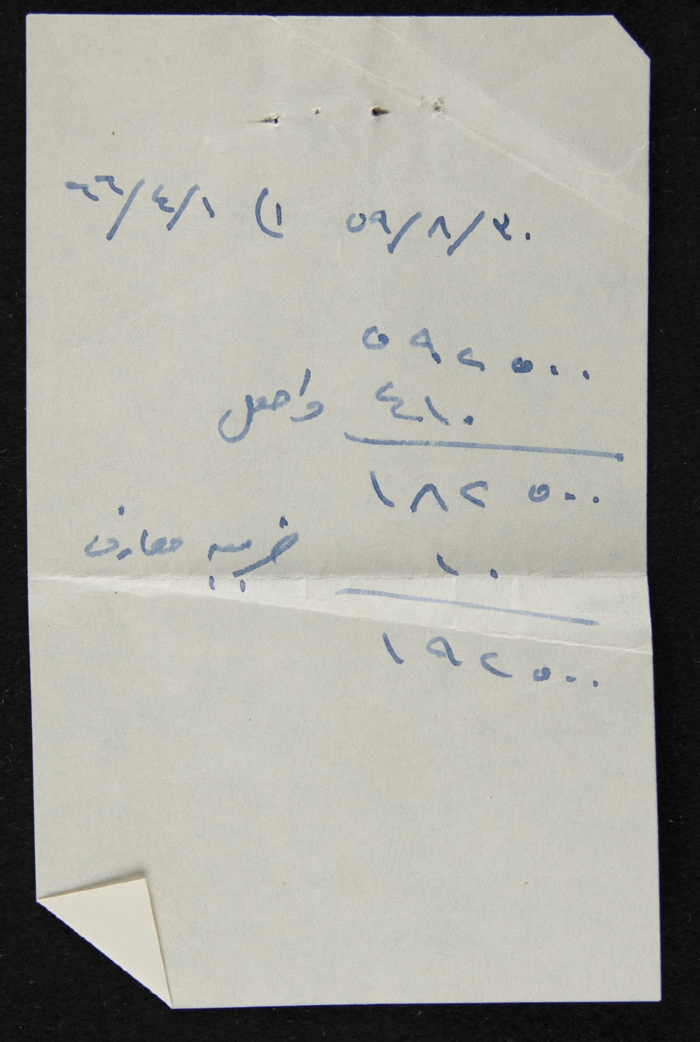 ٥٩/٨/٢٠ ٦٦/٤/١
٥٩٢ ٥٠٠
٤١٠ واصل
١٨٢ ٥٠٠
١٠ ضريبه معارف
١٩٢ ٥٠٠